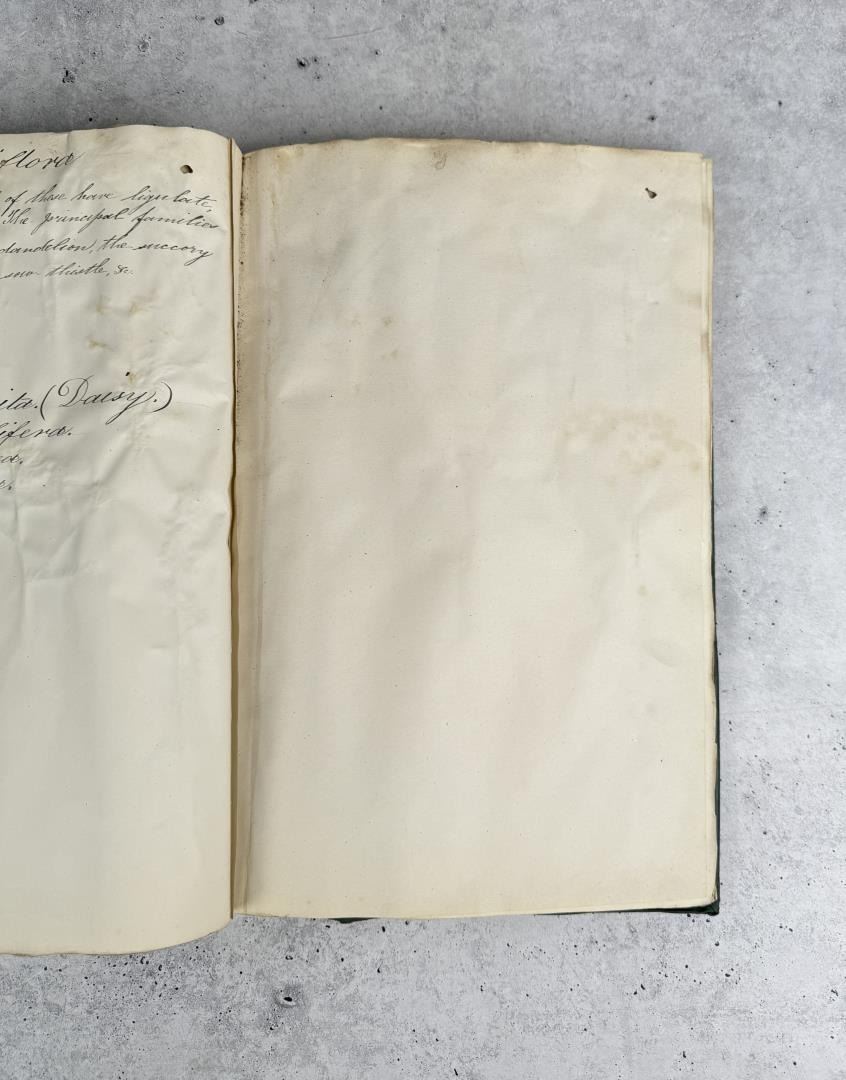 iflora
of these have ligulate,
The principal families
dandelion, the succory
sow thistle, &c.
ita. (Daisy.)
lifera.